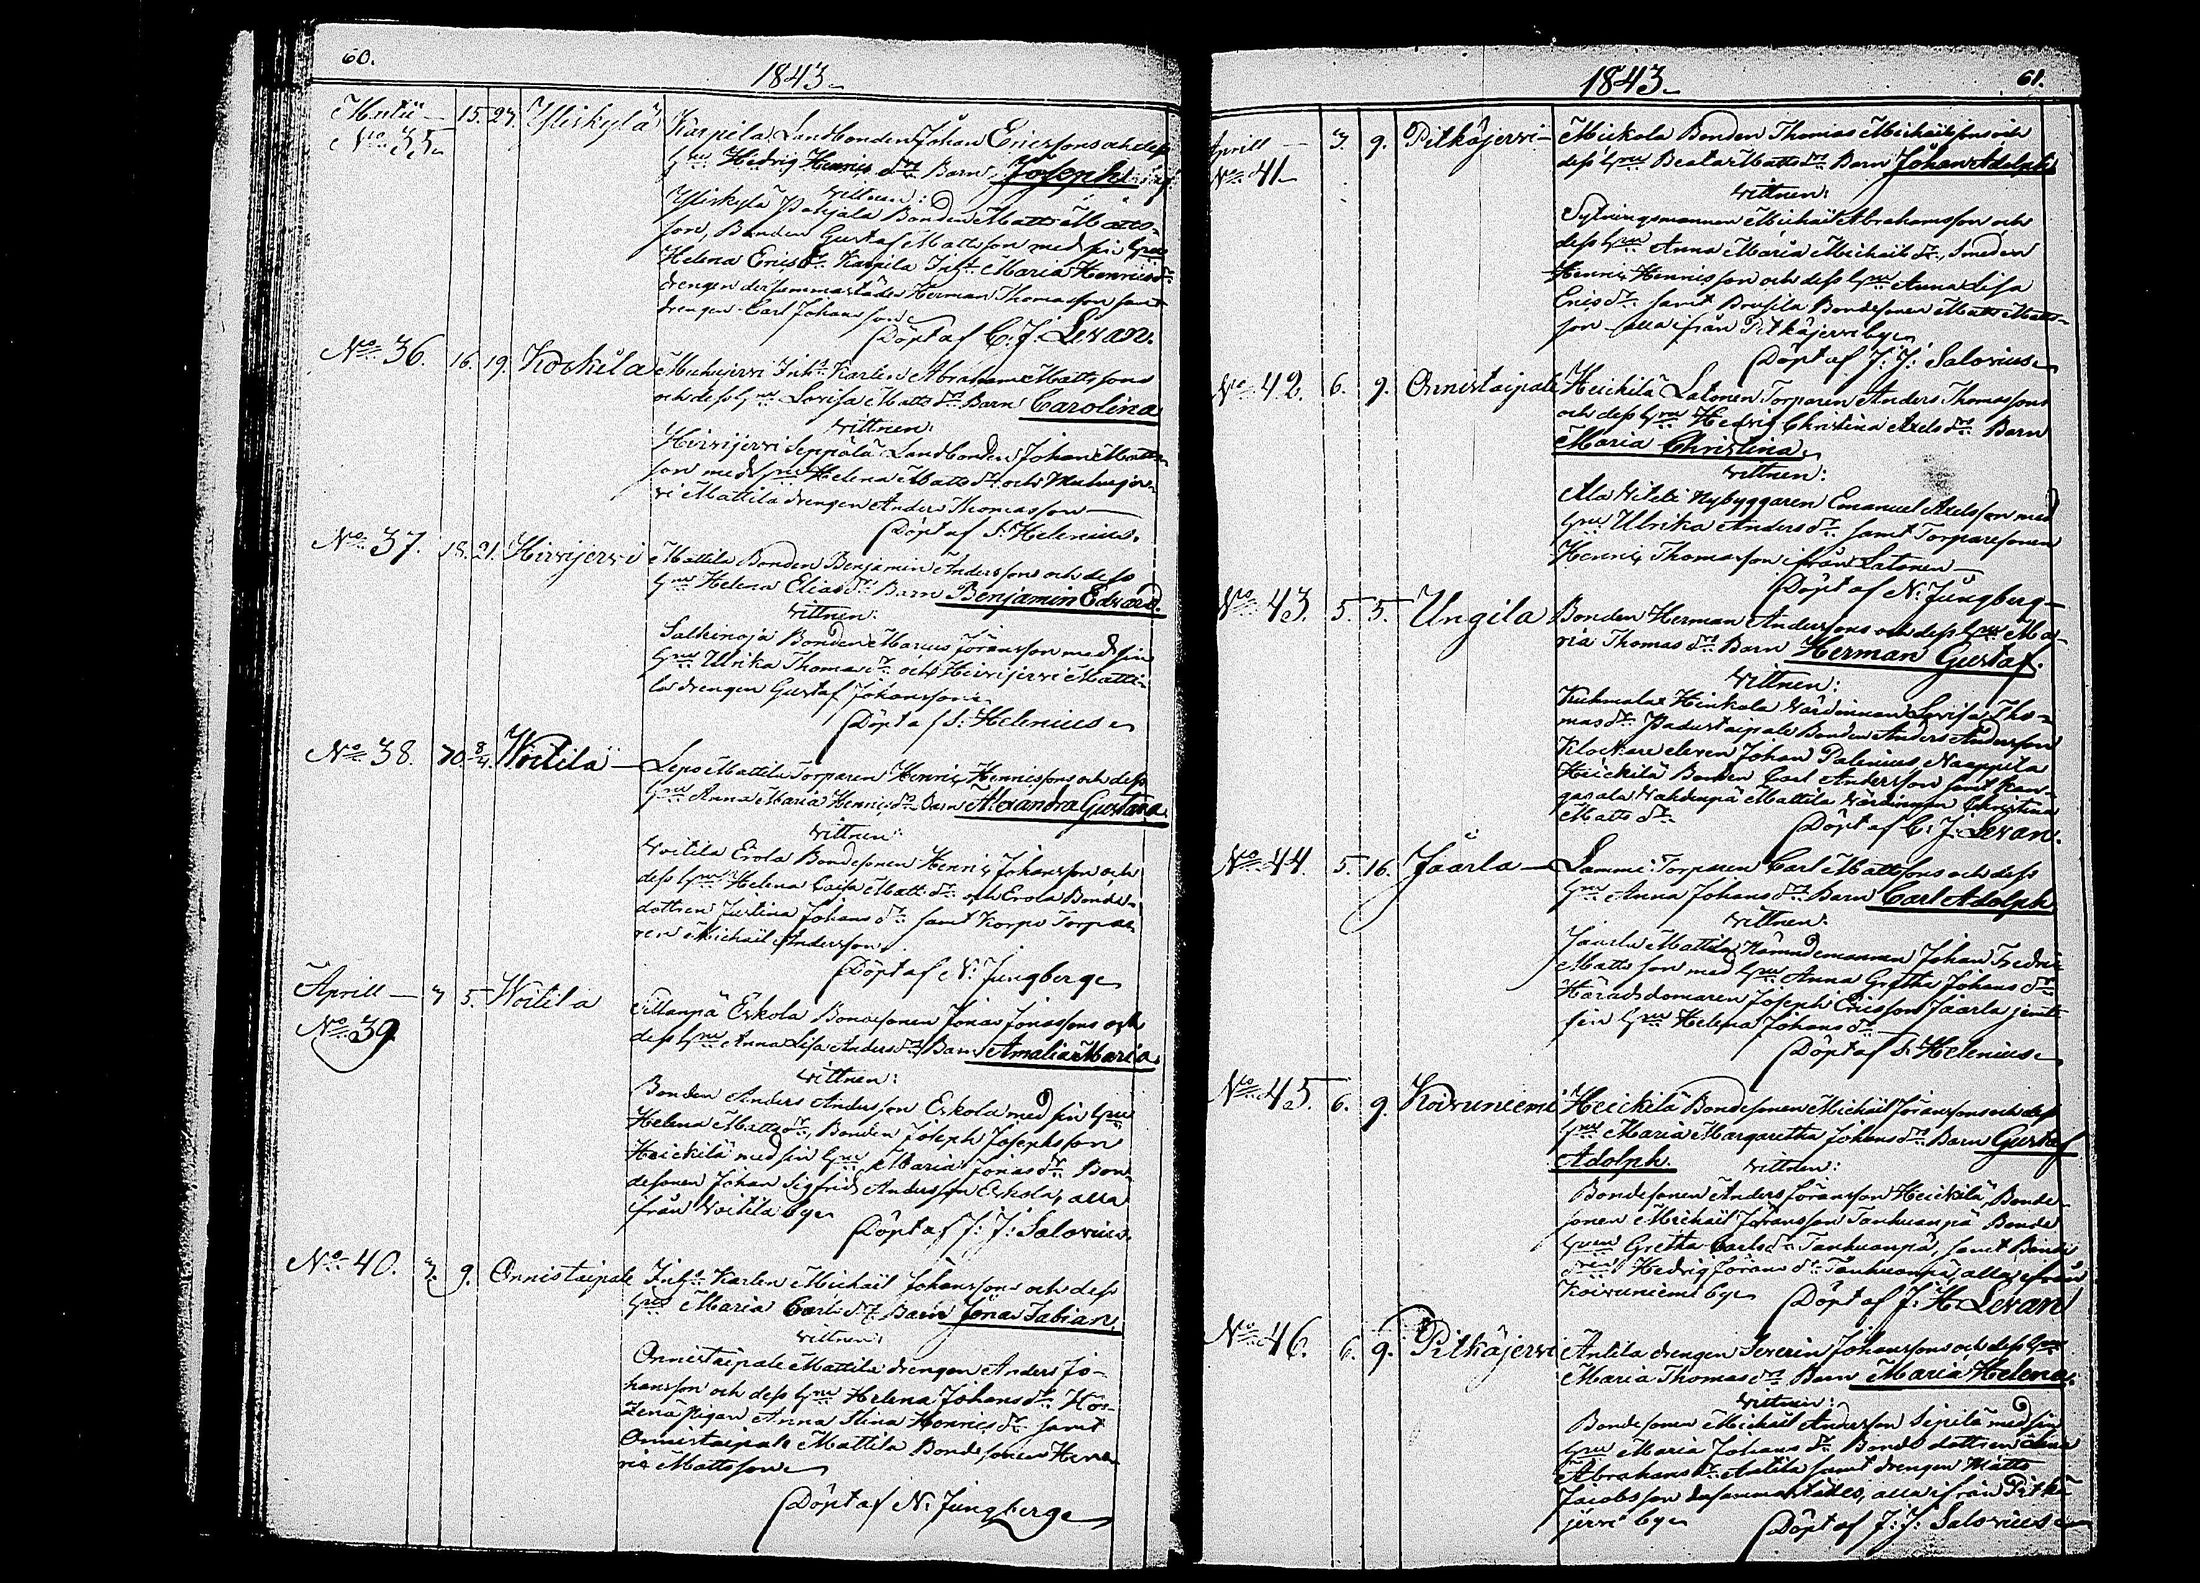 60.
1843
15. 27. Yliskylä Karpila Landbonden Johan Ericssons och dess
No 35 Hedvig Henrics dr Barn Joseph
vittnen:
Yliskylä Pohjala Bonden Matts Matts-
son, Bonden Gustaf Mattsson med sin
Helena Erics dr Karpila Inhs Maria Henrics dr
drengen dersammastädes Herman Thomasson samt
drengen Carl Johansson
Döpt af C. J. Levan.
No 36. 16. 19. Kockila Inhs Karlen Abraham Mattssons
och dess Lovisa Matts dr Barn Carolina
vittnen:
Hirvijervi Seppälä Landbonden Johan Matts-
son med Helena Matts dr och
ri Mattila drengen Anders Thomasson
Döpt af S. Helenius.
No 37. 18. 21. Hirvijervi Mattila Bonden Benjamin Anderssons och dess
Helena Elias dr Barn Benjamin Edvard.
vittnen:
Salkinoja Bonden Marcus Jöransson med sin
Ulrika Thomas dr och Hirvijervi Matti-
la drengen Gustaf Johansson
Döpt af S. Helenius
No 38. 8/4. Woitila Leps Mattila Torparen Henric Henricssons och dess
Anna Maria Henrics dr Barn Alexandra Gustava.
vittnen:
Woitila Erola Bondesonen Henric Johansson och
dess Helena Caisa Matts dr och Erola Bonde-
dottren Justina Johans dr samt Korpi Torpa-
ren Michaël Andersson.
Döpt af N. Jungberg
Aprill 3 5. Woitila Eskola Bondesonen Jonas Jonassons och
No 39. dess Anna Lisa Anders dr Barn Amalia Maria.
vittnen:
Bonden Anders Andersson Eskola med sin
Helena Matts dr, Bonden Joseph Josephsson
Heickilä med sin Maria Jonas dr Bon-
desonen Johan Sigfrid Andersson Eskola, alla
ifrån Woitila by
Döpt af J. J. Salovius.
No 40. 3. 9. Onnistaipale Inhs Karlen Michaël Johanssons och dess
Maria Carls dr Barn Jona Fabian.
vittnen:
Onnistaipale Mattila drengen Anders Jo-
hansson och dess Helena Johans dr
pigan Anna Stina Henrics dr samt
Onnistaipale Mattila Bondesonen Hen-
ric Mattsson
Döpt af N. Jungberg
1843 61.
Aprill 3. 9. Pitkäjervi Mickola Bonden Thomas Michaëlssons och
No 41. dess Beata Matts dr Barn Johan Adolph
vittnen:
Sytningsmannen Michaël Abrahamsson och
dess Anna Maria Michaels dr, Smeden
Henric Henricsson och dess Anna Lisa
Erics dr samt Bondesonen Matts Matts-
son alla ifrån Pitkäjervi by
Döpt af J. J. Salovius
No 42. 6. 9. Onnistaipale Heickilä Latonen Torparen Anders Thomassons
och dess Hedvig Christina Axels dr Barn
Maria Christina.
vittnen:
Ala Witeli Nybyggaren Emanuel Axelsson med
Ulrika Anders dr samt Torparesonen
Henric Thomasson ifrån Latonen
Döpt af N. Jungberg
No 43. 5. 5. Ungila Bonden Herman Anderssons och dess Ma-
ria Thomas dr Barn Herman Gustaf.
vittnen:
Kuhmala Heickola Värdinnan Lovisa Tho-
mas dr Padustaipale Bonden Anders Andersson
Klockare eleven Johan Palenius Naappila
Heickilä Bonden Carl Andersson samt Kan-
gasala Wahdenpä Mattila Värdinnan Christina
Matts dr
Döpt af C. J. Levan.
No 44. 5. 16. Jaarla Lammi Torparen Carl Mattssons och dess
Anna Johans dr Barn Carl Adolph
vittnen:
Jaarla Mattila Nämndemannen Johan Fredric
Mattsson med Anna Gretha Johans dr
Häradsdomaren Joseph Ericsson Jaarla jemte
sin Helena Johans dr
Döpt af S. Helenius
No 45. 6. 9 Koivuniemi Heickilä Bondesonen Michaël Jöranssons och dess
Maria Margaretha Johans dr Barn Gustaf
Adolph. vittnen:
Bondesonen Anders Jöransson Heickilä, Bonde-
sonen Michaël Jöransson Tanhuanpä Bonde
Gretha Carls dr Tanhuanpä, samt Bonde
Hedvig Jörans dr Tanhuanpä, alla ifrån
Koivuniemi by
Döpt af J. H. Levan
No 46. 6. 9. Pitkäjervi Antila drengen Severin Johanssons och dess
Maria Thomas dr Barn Maria Helena.
vittnen:
Bondesonen Michaël Andersson Sipilä med sin
Maria Johans dr Bondedottren
Abrahams dr Antila samt drengen Matts
Jacobsson dersammastädes, alla ifrån Pitkä-
jervi by
Döpt af J. J. Salovius